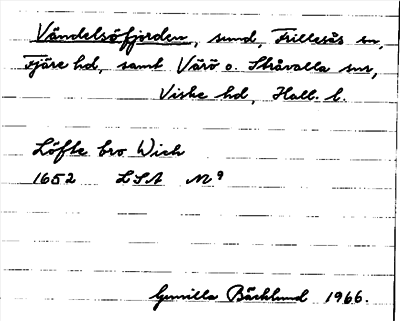 Vändelsöfjorden, sund, Frillesås sn,
Fjäre hd, samt Värö o. Stråvalla snr,
Viske hd, Hall. l.
Löfte bro Wich
1652 LSA N9
Gunilla Bäcklund 1966.